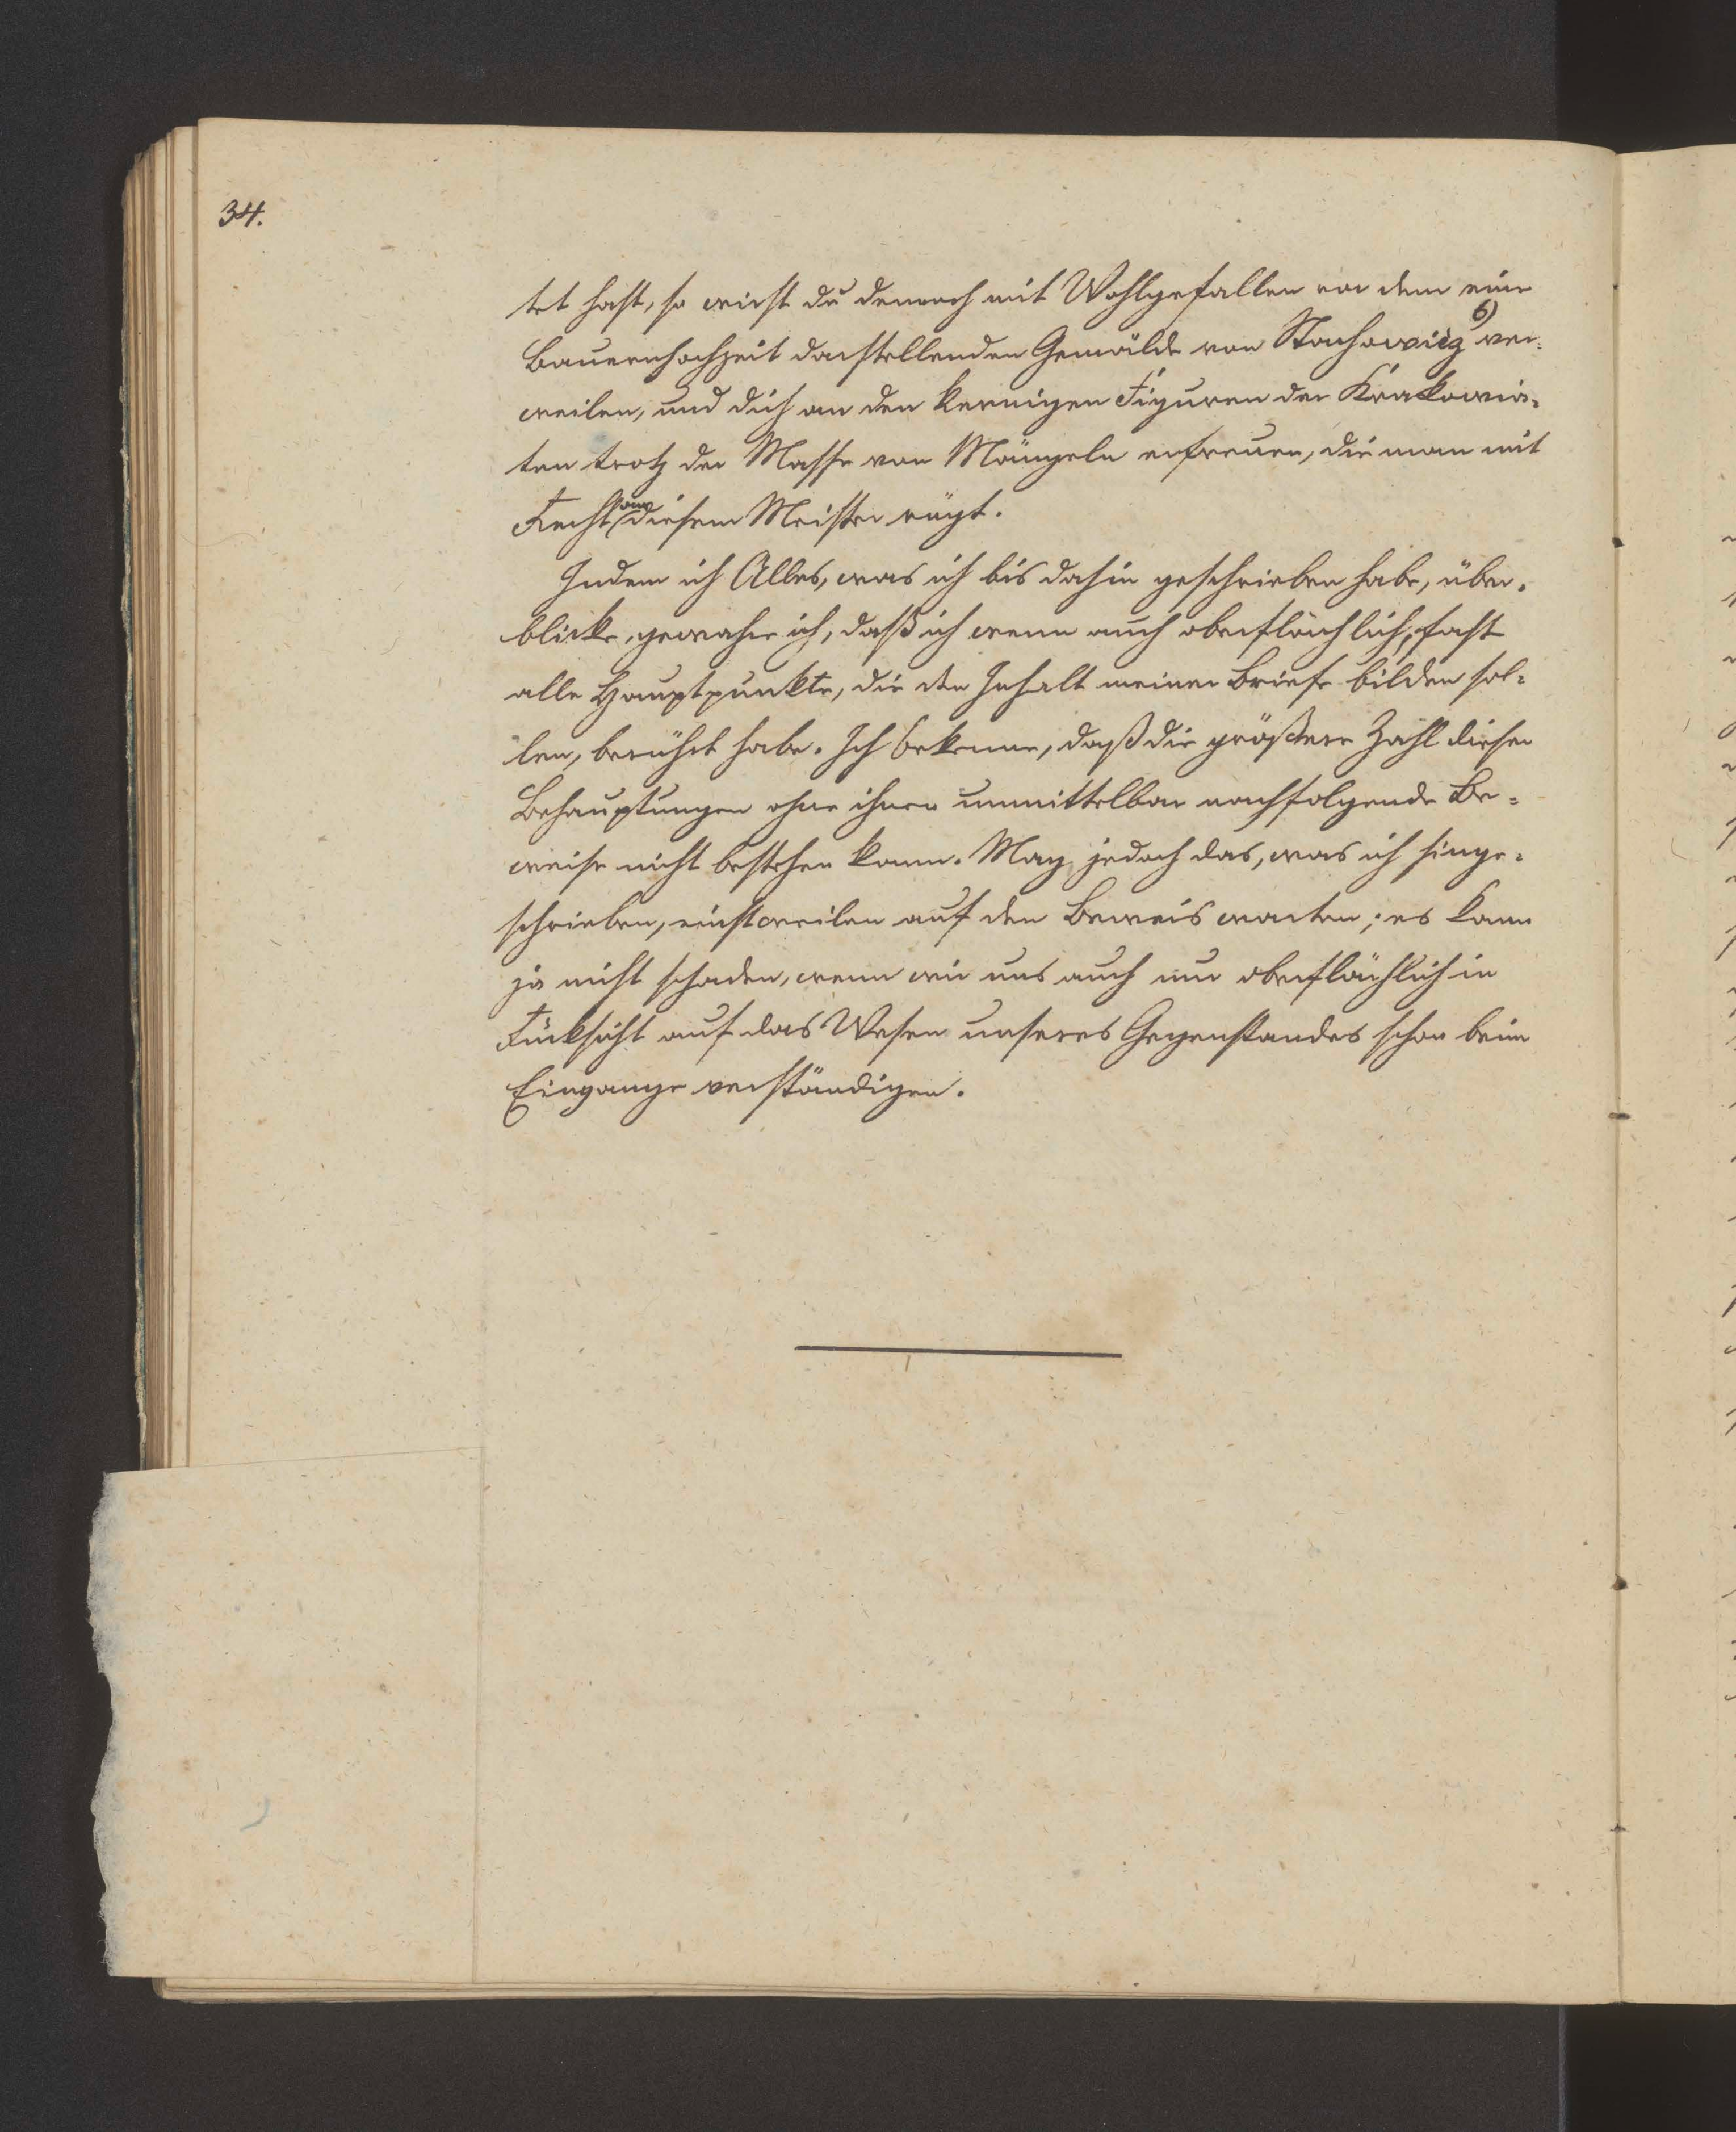 34.
tet hast, so wirst du dennoch mit Wohlgefallen vor dem eine
Bauernhochzeit darstellenden Gemälde von Stachowicz 6) ver-
weilen, und dich an den kernigen Figuren der Krakowia-
ken trotz der Masse von Mängeln erfreuen, die man mit
Recht an diesem Meister rügt.
Indem ich Alles, was ich bis dahin geschrieben habe, über-
blicke, gewahre ich, daß ich wenn auch oberflächlich, fast
alle Hauptpunkte, die den Inhalt meiner Briefe bilden sol-
len, berührt habe. Ich bekenne, daß die größere Zahl dieser
Behauptungen ohne ihnen unmittelbar nachfolgende Be-
weise nicht bestehen kann. Mag jedoch das, was ich hinge-
schrieben, einstweilen auf den Beweis warten; es kann
ja nicht schaden, wenn wir uns auch nur oberflächlich in
Rücksicht auf das Wesen unseres Gegenstandes schon beim
Eingange verständigen.